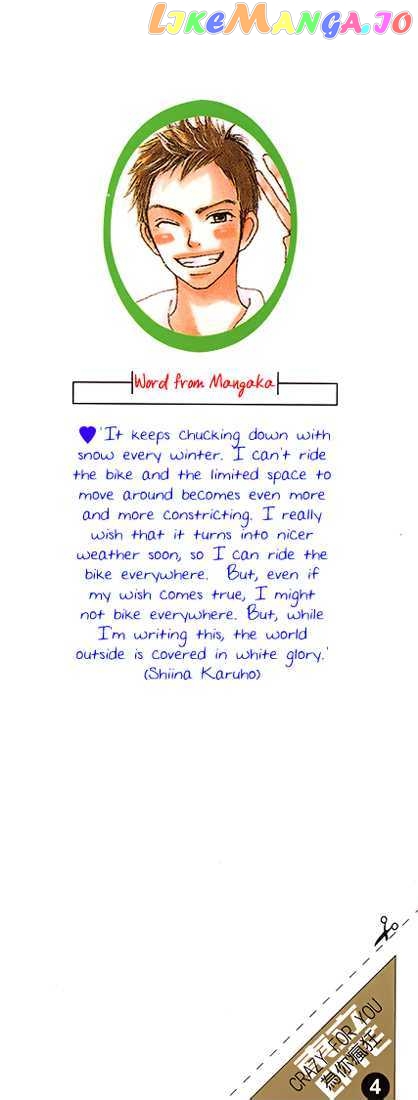 LIKEMANGA.IO
Word from Mangaka
'It keeps chucking down with
snow every winter. I can't ride
the bike and the limited space to
move around becomes even more
and more constricting. I really
wish that it turns into nicer
weather soon, so I can ride the
bike everywhere. But, even if
my wish comes true, I might
not bike everywhere. But, while
I'm writing this, the world
outside is covered in white glory.'
(Shiina Karuho)
CRAZY FOR YOU
為你瘋狂
4